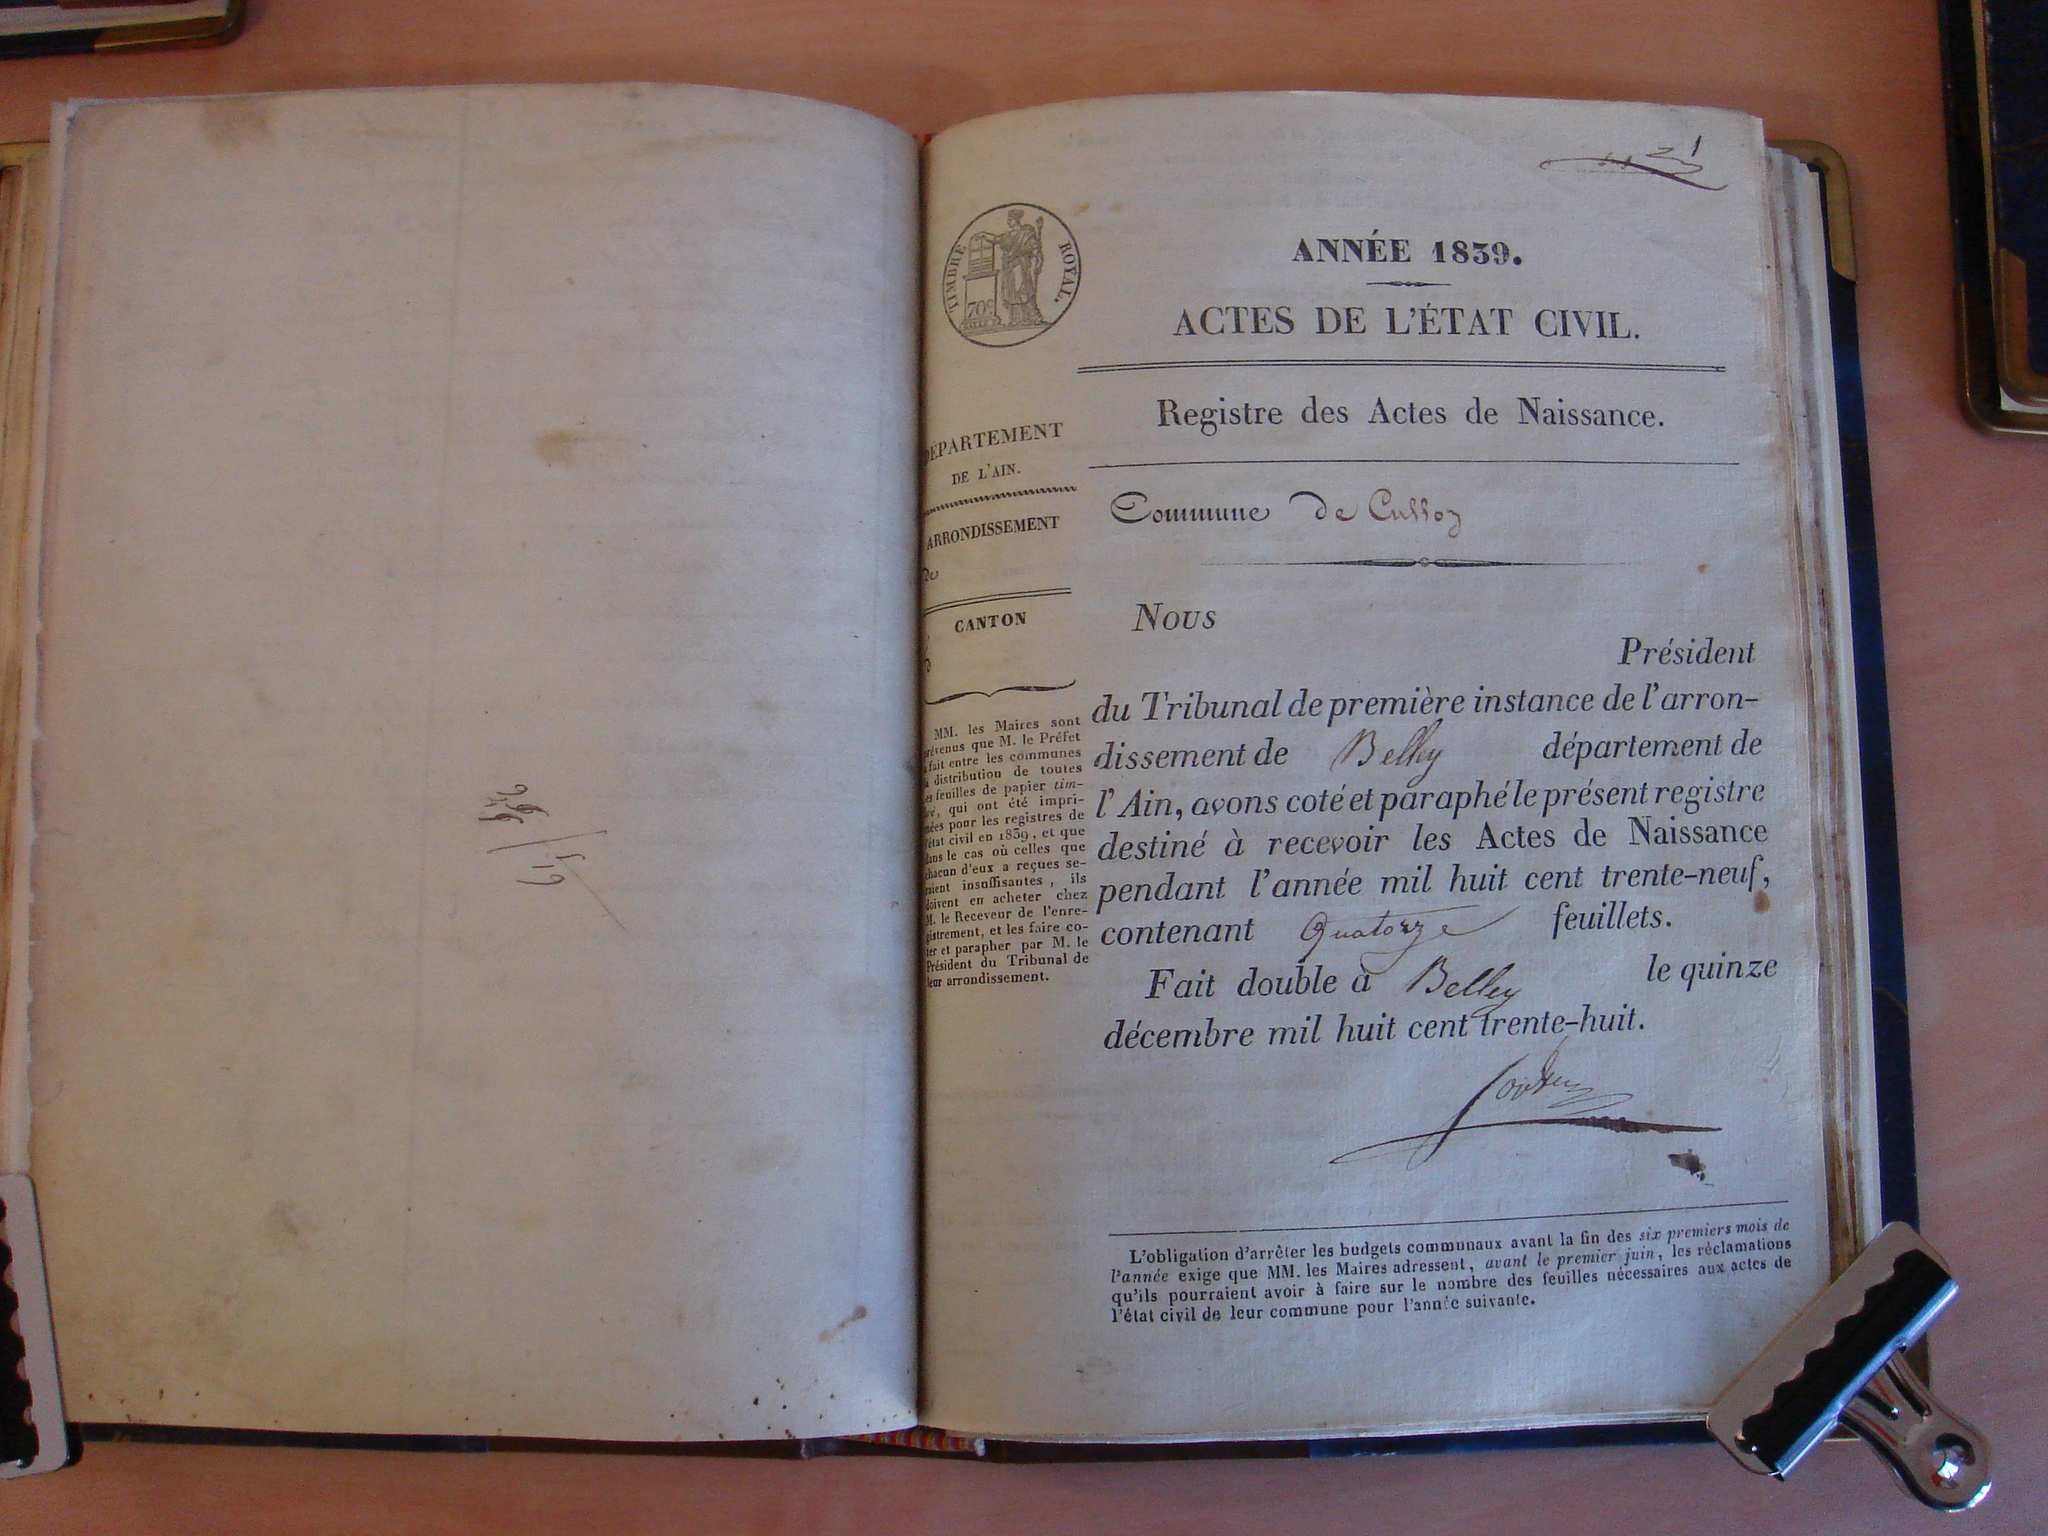 1
ANNÉE 1839.
ACTES DE L'ÉTAT CIVIL.
Registre des Actes de Naissance.
Commune de Culloz
TIMBRE ROYAL.
70c
DÉPARTEMENT
DE L'AIN.
ARRONDISSEMENT
de
CANTON
MM. les Maires sont
prévenus que M. le Préfet
a fait entre les communes
la distribution de toutes
les feuilles de papier tim-
bré, qui ont été impri-
mées pour les registres de
l'état civil en 1839, et que
dans le cas où celles que
chacun d'eux a reçues se-
raient insuffisantes, ils
doivent en acheter chez
M. le Receveur de l'enre-
gistrement, et les faire co-
ter et parapher par M. le
Président du Tribunal de
leur arrondissement.
Nous
Président
du Tribunal de première instance de l'arron-
dissement de Belley département de
l'Ain, avons coté et paraphé le présent registre
destiné à recevoir les Actes de Naissance
pendant l'année mil huit cent trente-neuf,
contenant Quatorze feuillets.
Fait double à Belley le quinze
décembre mil huit cent trente-huit.
L'obligation d'arrêter les budgets communaux avant la fin des six premiers mois de
l'année exige que MM. les Maires adressent, avant le premier juin, les réclamations
qu'ils pourraient avoir à faire sur le nombre des feuilles nécessaires aux actes de
l'état civil de leur commune pour l'année suivante.